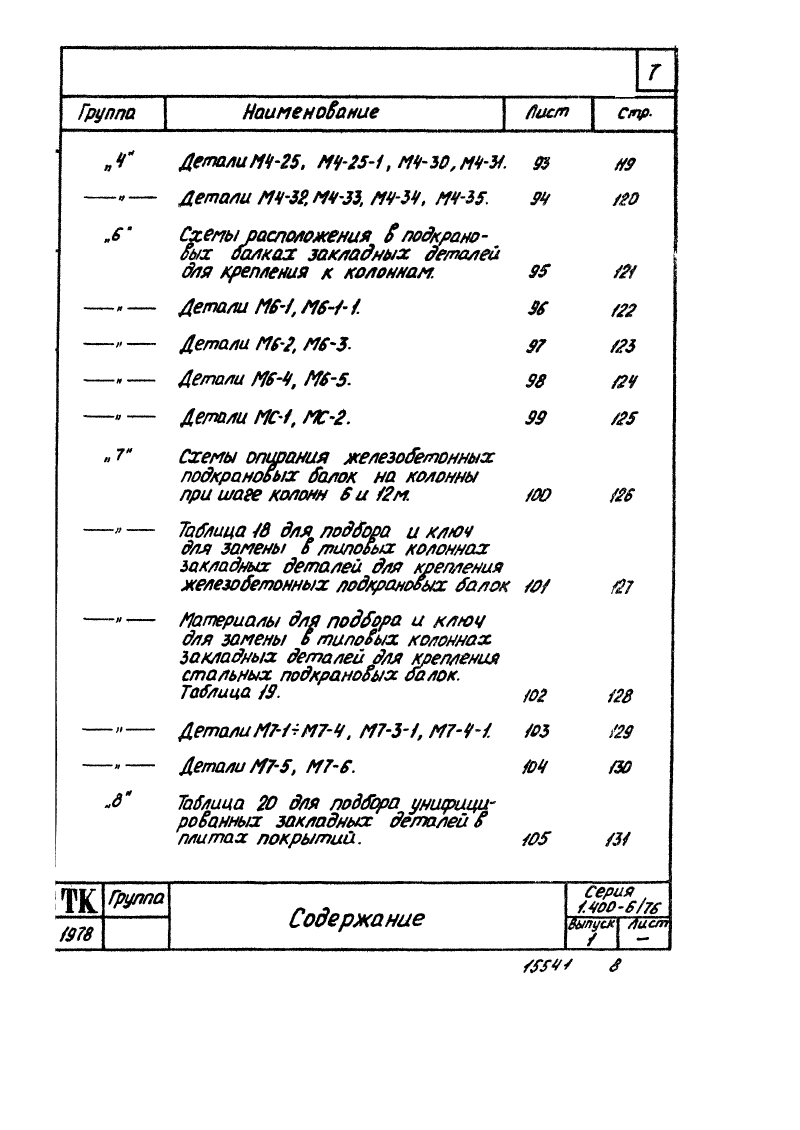 7
Группа Наименование Лист Стр.
„4" Детали М4-25, М4-25-1, М4-30, М4-31. 93 119
—"— Детали М4-32, М4-33, М4-34, М4-35. 94 120
„6" Схемы расположения в подкрано-
вых балках закладных деталей
для крепления к колоннам. 95 121
—"— Детали М6-1, М6-1-1. 96 122
—"— Детали М6-2, М6-3. 97 123
—"— Детали М6-4, М6-5. 98 124
—"— Детали МС-1, МС-2. 99 125
„7" Схемы опирания железобетонных
подкрановых балок на колонны
при шаге колонн 6 и 12м. 100 126
—"— Таблица 18 для подбора и ключ
для замены в типовых колоннах
закладных деталей для крепления
железобетонных подкрановых балок 101 127
—"— Материалы для подбора и ключ
для замены в типовых колоннах
закладных деталей для крепления
стальных подкрановых балок.
Таблица 19. 102 128
—"— Детали М7-1÷М7-4, М7-3-1, М7-4-1. 103 129
—"— Детали М7-5, М7-6. 104 130
„8" Таблица 20 для подбора унифици-
рованных закладных деталей в
плитах покрытий. 105 131
ТК Группа Содержание Серия
1.400-6/76
1978 Выпуск Лист
1 —
15541 8